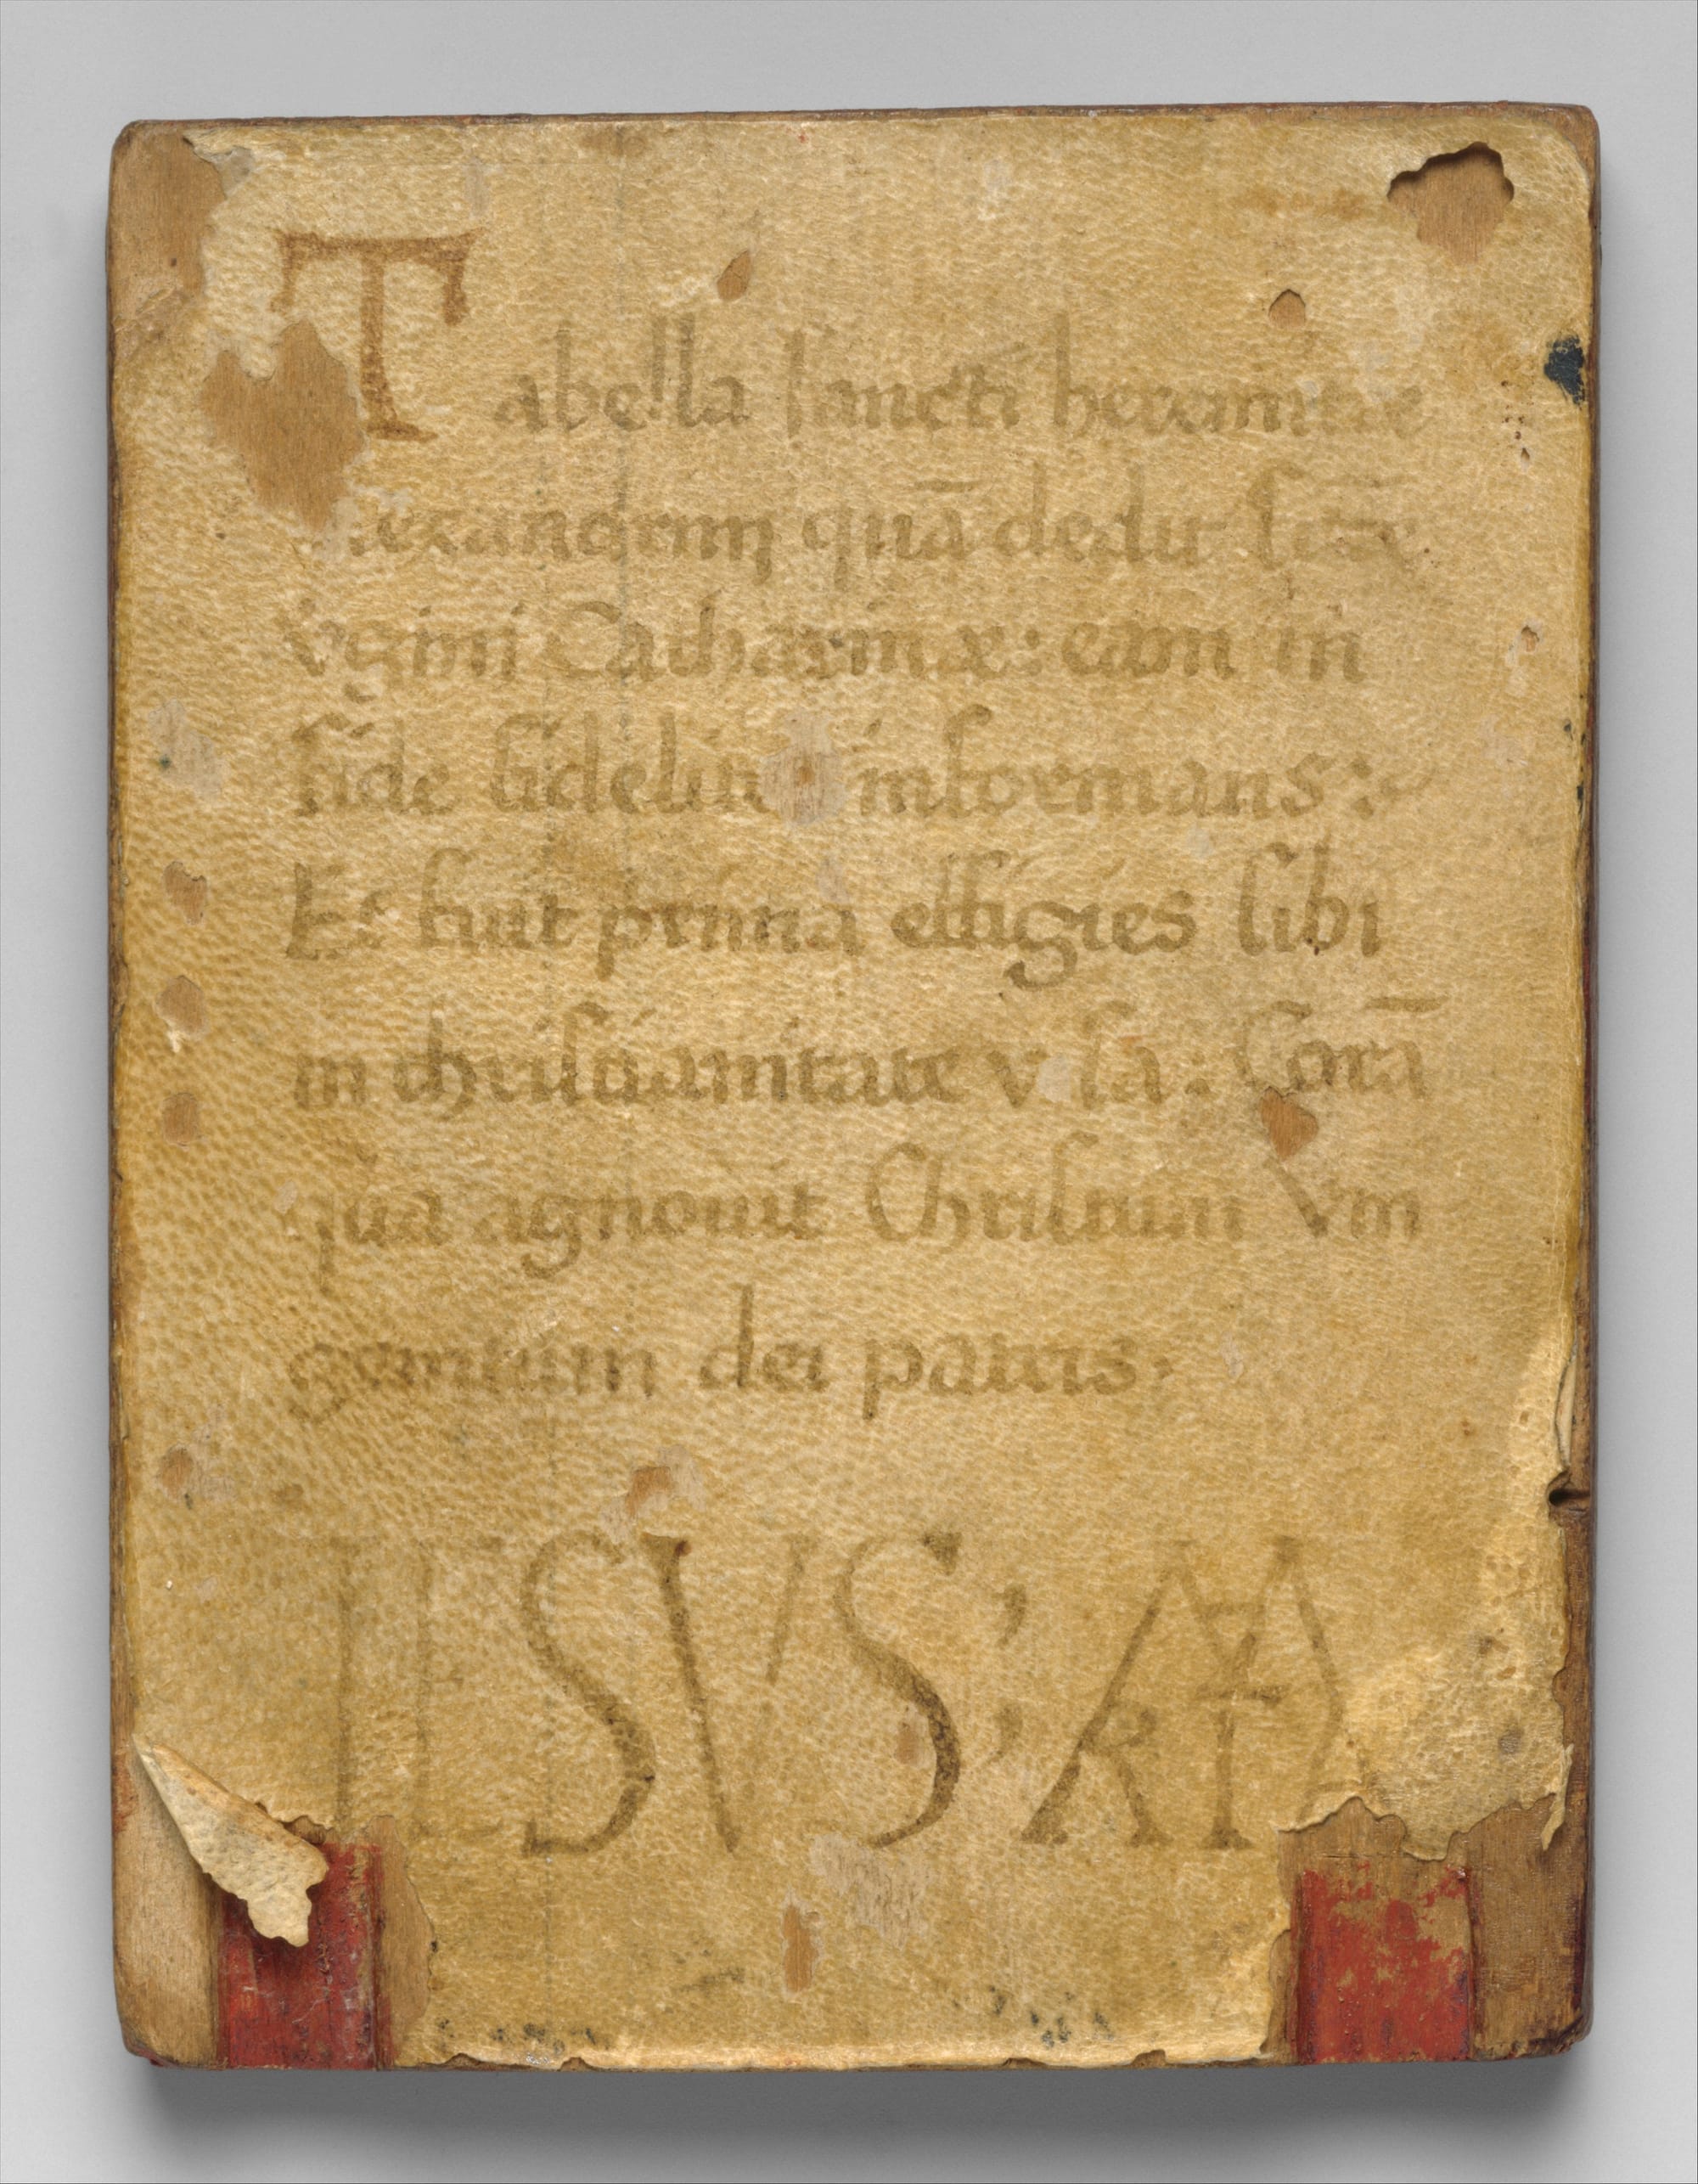 Tabella sancti heremitae
lexandrini quā dedit sctæ
v̇gini Catharinæ: eam in
fide fideliu informans:
Es fuit prima effigies sibi
in christianitate visa: Corā
qua agnovit Christum Vni
genitum dei patris.
IESVS, MA